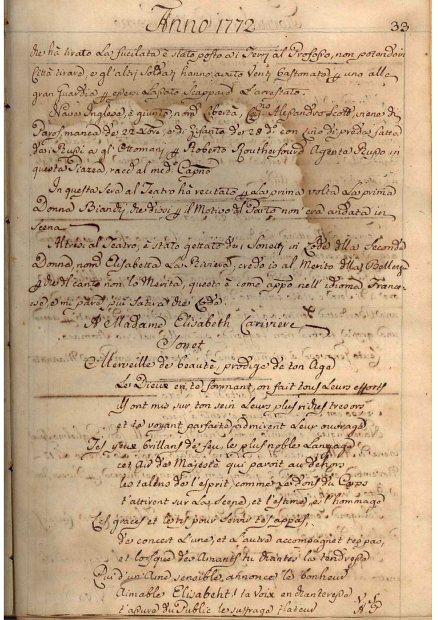 Anno 1772 33
che hà tirato la fucilata è stato posto ai ferri al Profosso, non potendosi in
Città tirare, e gl'altri Soldati hanno avuto venti Bastonate uno alla
gran Guardia
Nave Inglese, è giunta nomª Libertà, Capno Alessandro Scott, viene da
Paros, manca da 22 Loro, ed
dai Russi a gl'Ottomani Roberto Routherfourd Agente Russo in
questa Piazza, racc al medº Capno
In questa sera al Teatro hà recitato la prima volta la prima
Donna Bianchi, che dissi il Motivo del Parto non era andata in
Scena
Altresi al Teatro, è stato gettato dei Sonetti in Lode della Seconda
Donna nomª Elisabetta La Riviera, credo io al Merito della Bellezza
che il canto non lo Merita, questo è come appº nell'idioma France-
se, e mi pare più Satira che Lode
A Madame Elisabeth Cariviere
Sonet
Merveille de beauté, prodige de ton Age
Les Dieux en te formant, on fait tous leurs efforts
ils ont mis sur ton sein leurs plus riches tresors
et te voyant parfaite admirent leur ouvrage
Tes yeux brillans de feu, le plus noble Langage
cet air de Majesté qui paroit au dehors
les talens de l'esprit comme les dons du Corps
t'attirent sur la Scene, et l'estime, et l'hommage
Les graces et les ris pour servir tes appas,
de concert l'une, et l'autre accompagnet tes pas,
et lorsque des Amants tu chantes la tendresse
Qui d'un Ame sensible, annonce le bonheur
Aimable Elisabeht ta voix enchanteresse
t'assure du Public le sufrage flateur